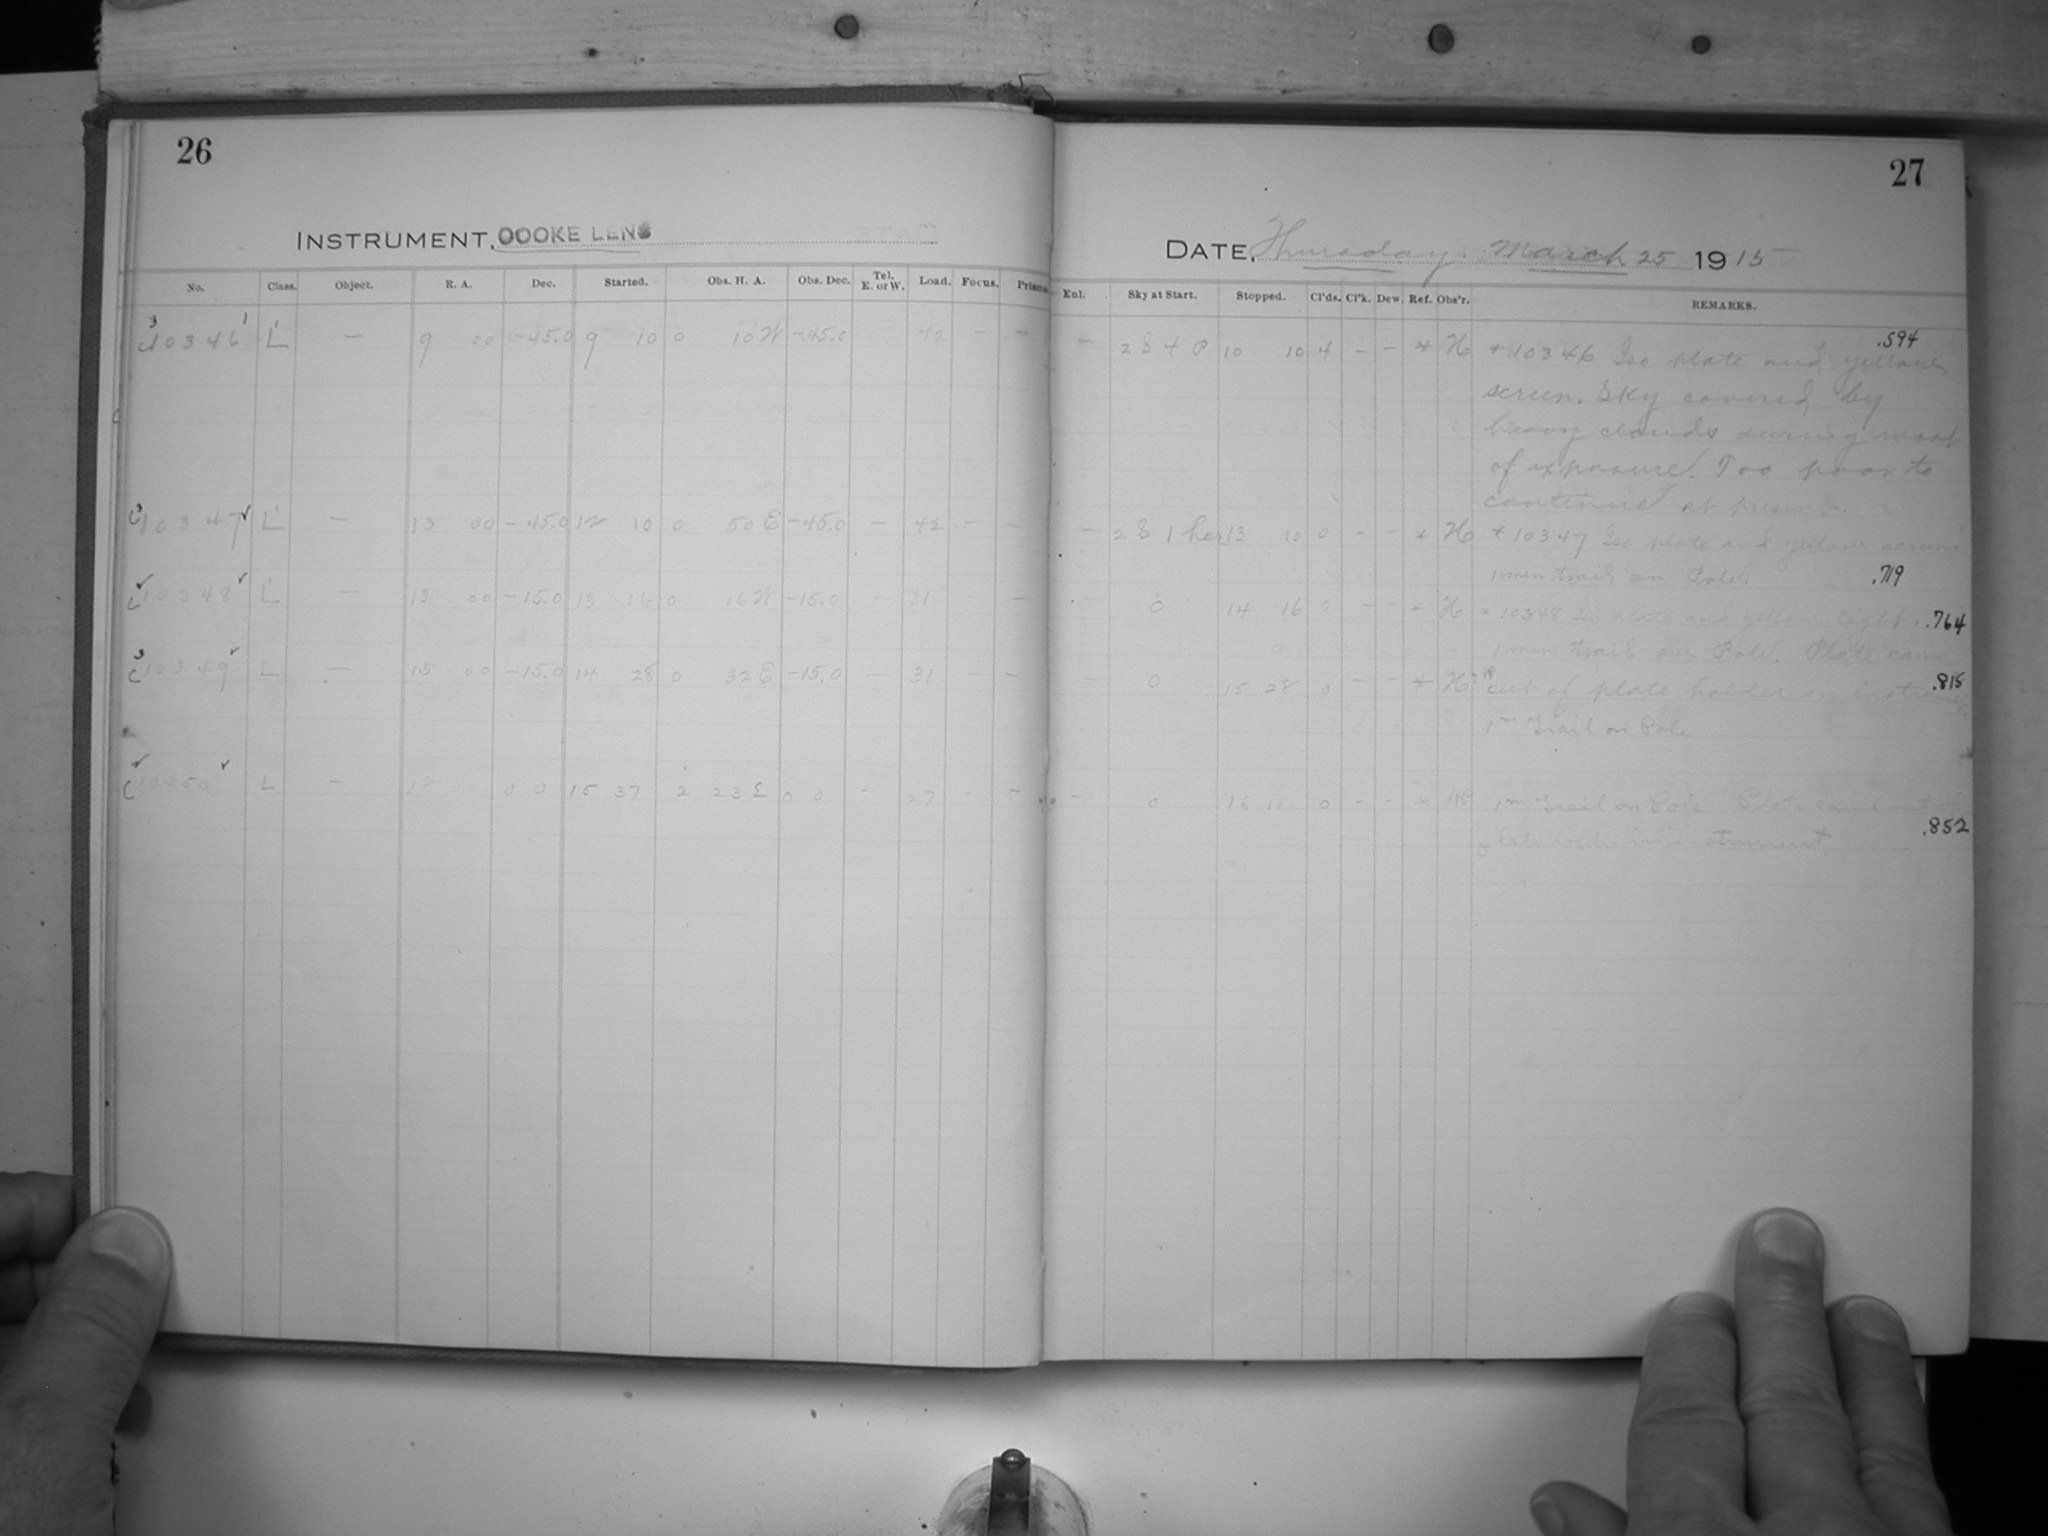 26
27
INSTRUMENT, COOKE LENS
DATE, Thursday. March 25 1915
No. Class. Object. R. A. Dec. Started. Obs. H. A. Obs. Dec. Tel. E. or W. Load. Focus. Prism.
Enl. Sky at Start. Stopped. Cl'ds. Cl'k. Dew. Ref. Obs'r. REMARKS.
10346 L — 9 00 -45.0 9 10 0 10 W -45.0 42 - -
10 10 4 - - * H * 10346 Iso plate and yellow .594
screen. Sky covered by
heavy clouds during most
of exposure. Too poor to
continue at present.
10347 L — 13 00 -45.0 12 10 0 50 E -45.0 - 42 - -
- 13 10 0 - - * H * 10347 Iso plate and yellow screen
1 min trail on Pole. .719
10348 L — 13 00 -15.0 13 16 0 16 W -15.0 - 31 -
- 0 14 16 0 - - * H * 10348 Iso plate and yellow light .764
1 min trail on Pole. Plate came
10349 L — 15 00 -15.0 14 28 0 32 E -15.0 - 31 - -
- 0 15 28 0 - - * H out of plate holder in .815
1m Trail on Pole
10350 L - 18 00 15 37 2 23 E 00 - 27 - -
- 0 16 11 0 - - * 1m Trail on Pole Plate came out
.852